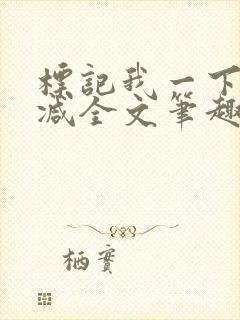 標記我一下
减全文筆趣
栖實